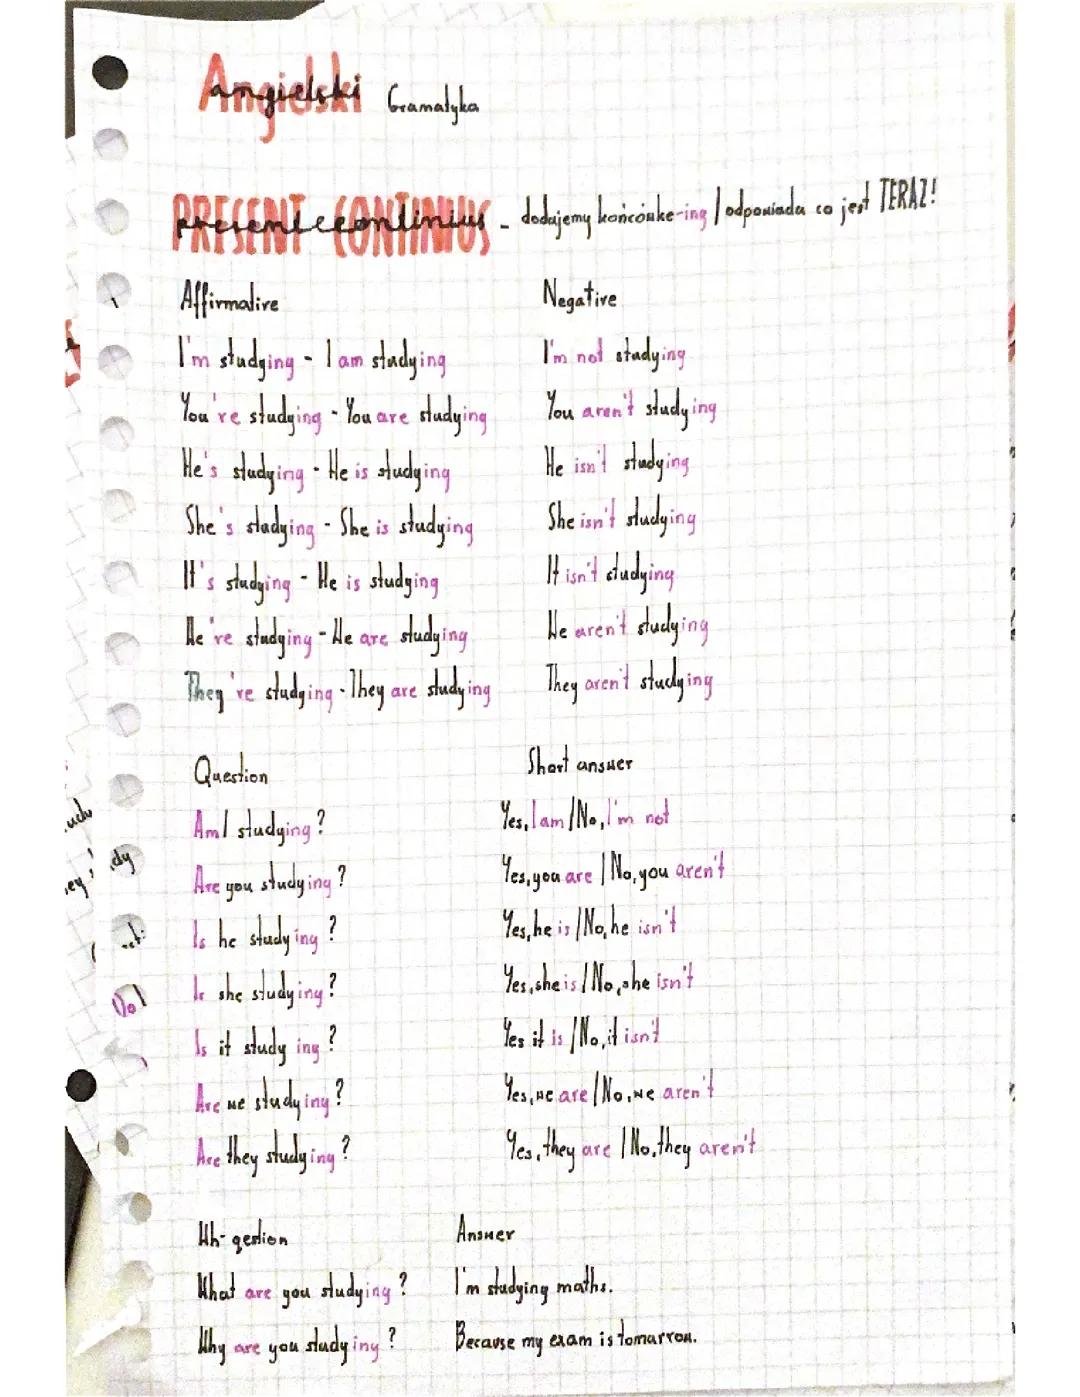 Angielski Gramatyka
PRESENT CONTINIUS - dodajemy końcówke -ing / odpowiada co jest TERAZ!
Affirmative
I'm studying - I am studying
You're studying - You are studying
He's studying - He is studying
She's studying - She is studying
It's studying - He is studying
We're studying - We are studying
They're studying - They are studying
Negative
I'm not studying
You aren't studying
He isn't studying
She isn't studying
It isn't studying
We aren't studying
They aren't studying
Question
Am I studying?
Are you studying?
Is he studying?
Is she studying?
Is it studying?
Are we studying?
Are they studying?
Short answer
Yes, I am / No, I'm not
Yes, you are / No, you aren't
Yes, he is / No, he isn't
Yes, she is / No, she isn't
Yes it is / No, it isn't
Yes, we are / No, we aren't
Yes, they are / No, they aren't
Wh- qestion
What are you studying?
Why are you studying?
Answer
I'm studying maths.
Because my exam is tomarrow.